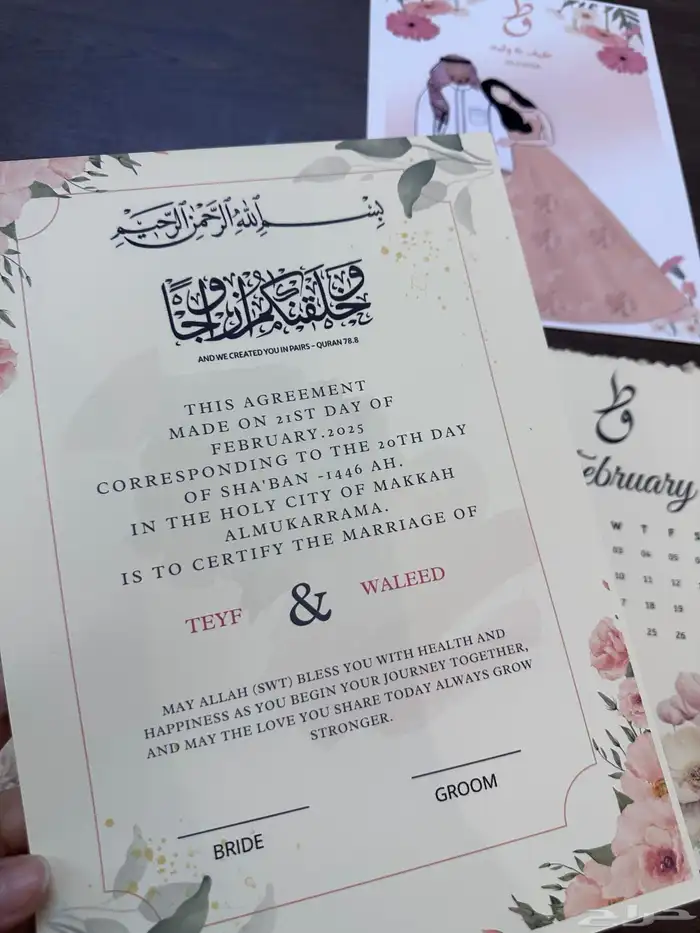 بسم الله الرحمن الرحيم
وخلقنكم أزواجا
AND WE CREATED YOU IN PAIRS – QURAN 78.8
THIS AGREEMENT
MADE ON 21ST DAY OF
FEBRUARY.2025
CORRESPONDING TO THE 20TH DAY
OF SHA'BAN -1446 AH.
IN THE HOLY CITY OF MAKKAH
ALMUKARRAMA.
IS TO CERTIFY THE MARRIAGE OF
TEYF & WALEED
MAY ALLAH (SWT) BLESS YOU WITH HEALTH AND
HAPPINESS AS YOU BEGIN YOUR JOURNEY TOGETHER,
AND MAY THE LOVE YOU SHARE TODAY ALWAYS GROW
STRONGER.
BRIDE
GROOM
ebruary
W T F S
03 04 05
10 11 12
7 18 19
25 26
حراج